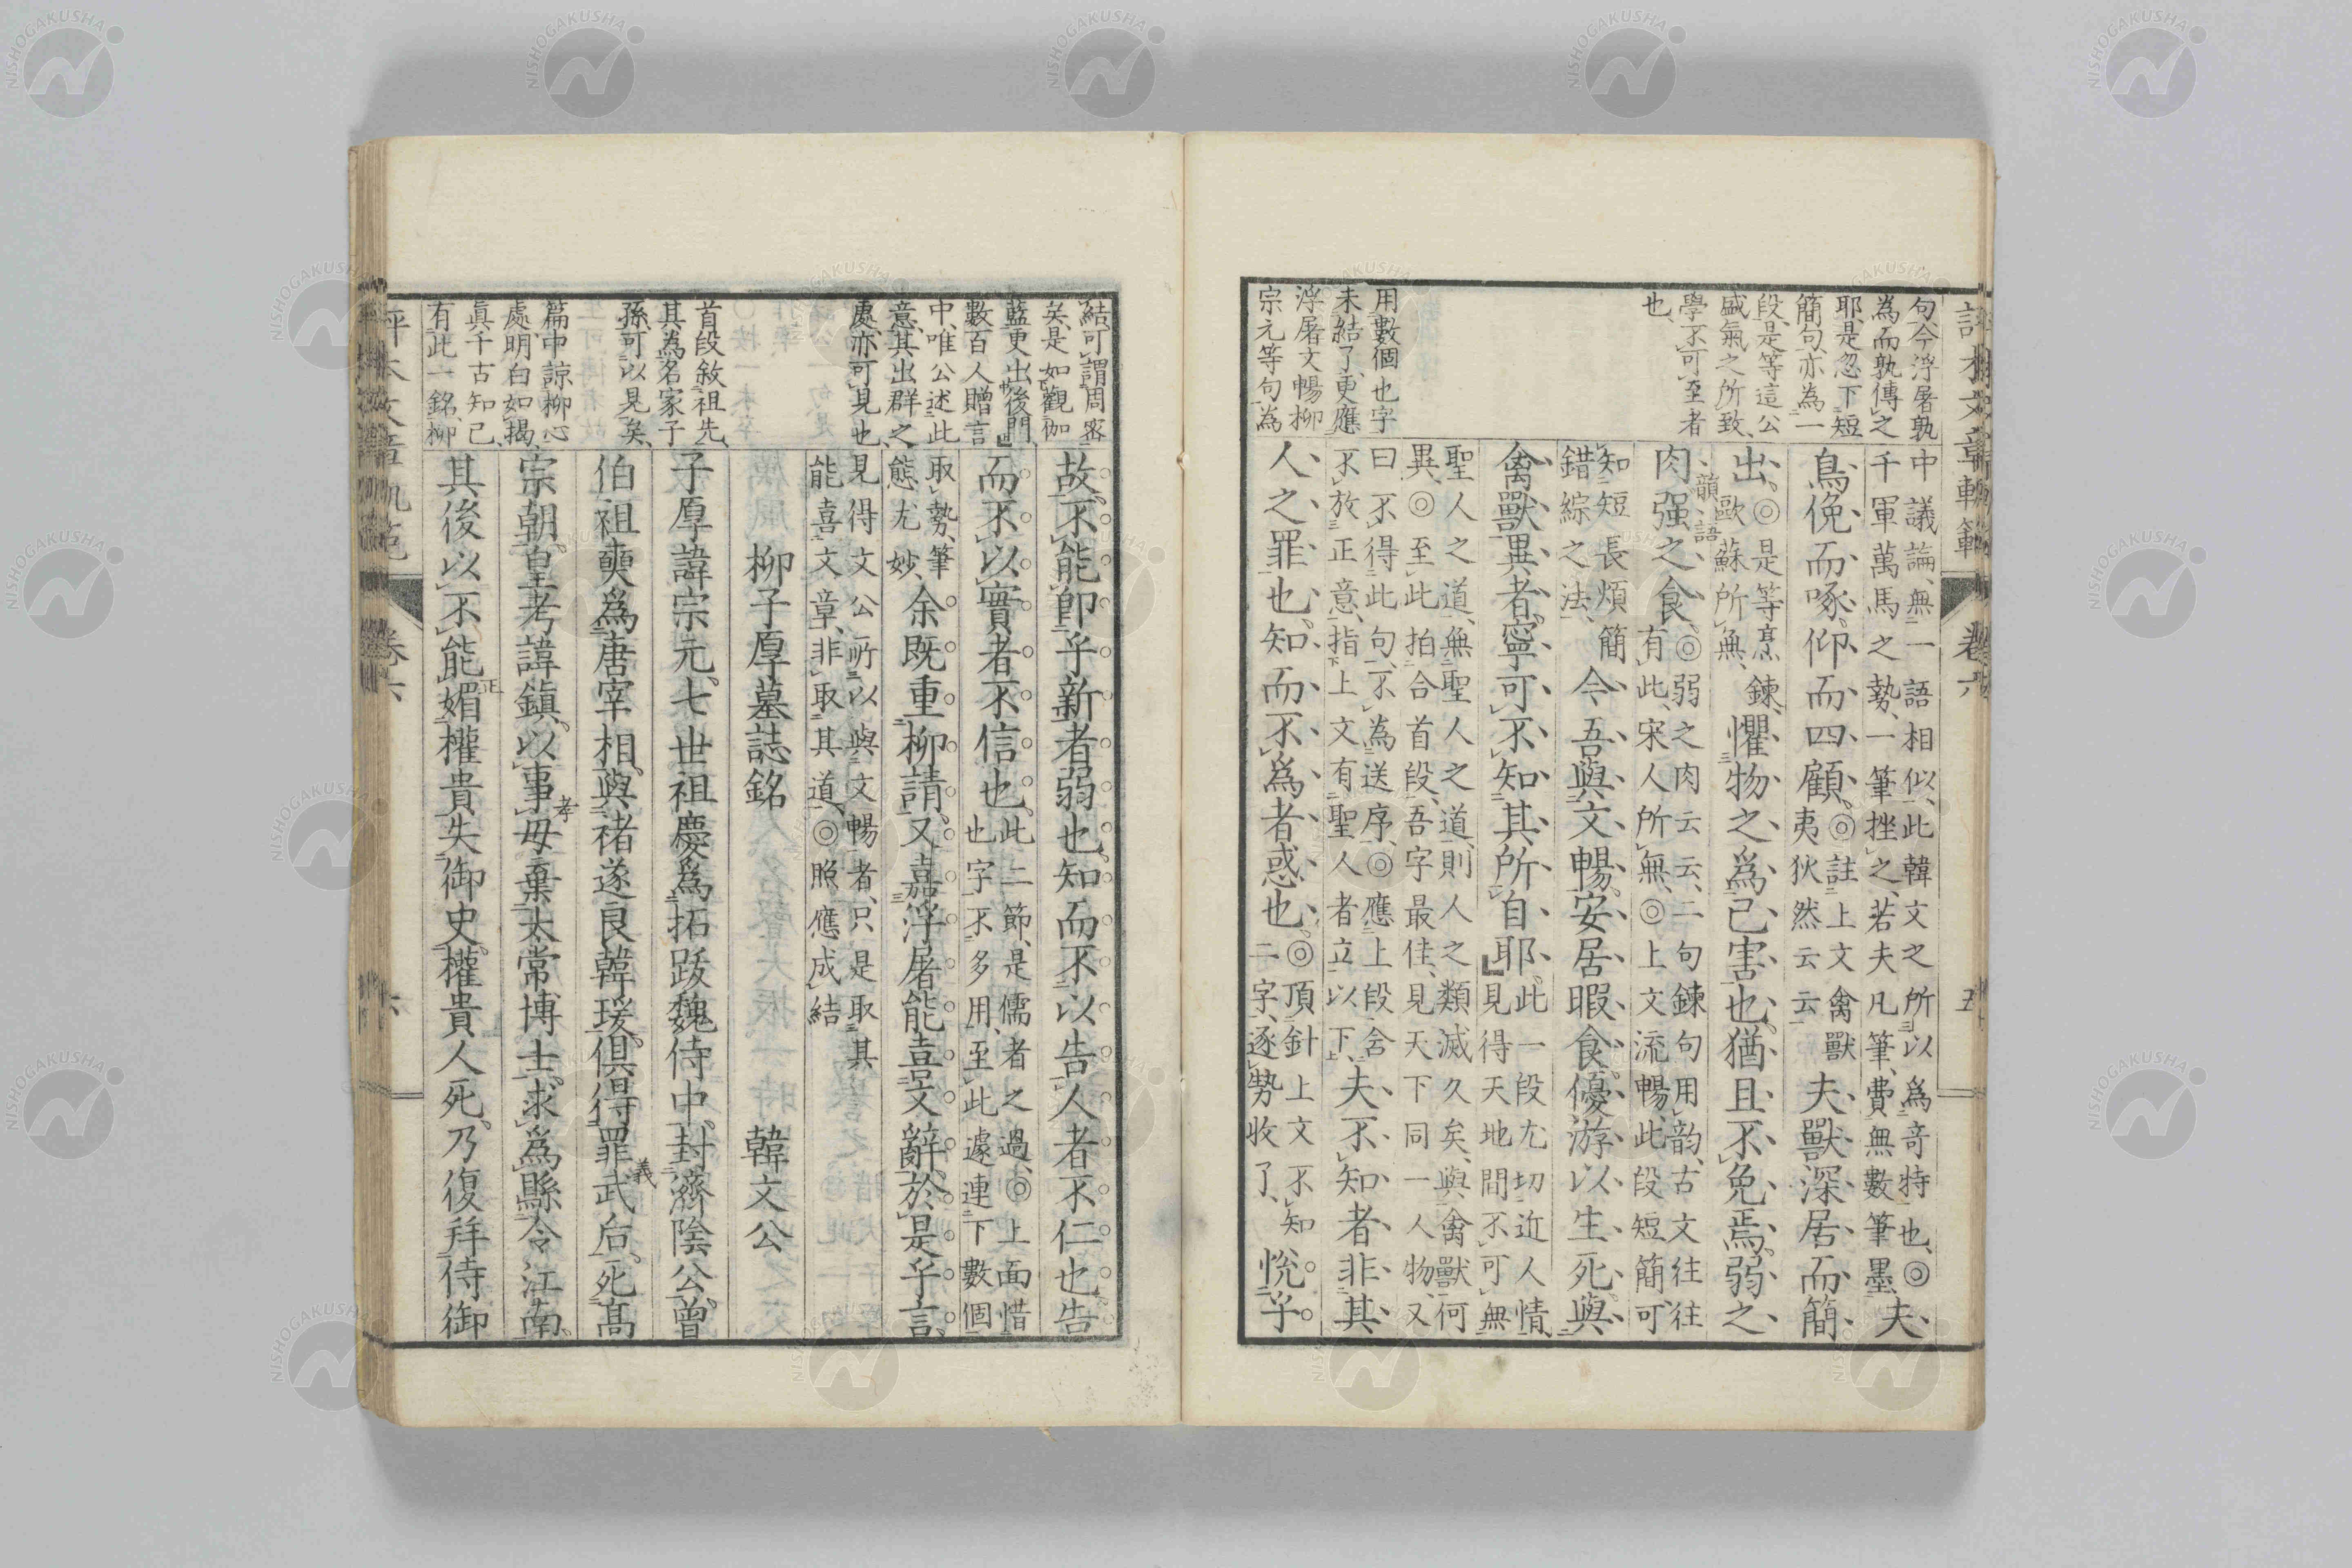 評本文章軌範
卷六
五
句今浮屠孰
為而孰傳之
耶是忽下短
簡句亦為一
段是等這公
盛氣之所致
學不可至者
也
用數個也字
未結了更應
浮屠文暢柳
宗元等句為
中議論無一語相似此韓文之所以為奇特也◎
千軍萬馬之勢一筆挫之若夫凡筆費無數筆墨
夫
鳥俛而啄仰而四顧
◎註上文禽獸
夷狄然云云
夫獸深居而簡
出
◎是等烹鍊
歐蘇所無
懼物之爲己害也猶且不免焉弱之
韻語
肉强之食
◎弱之肉云云二句鍊句用韵古文往往
有此宋人所無◎上文流暢此段短簡可
知短長煩簡
錯綜之法
今吾與文暢安居暇食優游以生死與
禽獸異者寧可不知其所自耶
此一段尤切近人情
見得天地間不可無
聖人之道無聖人之道則人之類滅久矣與禽獸何
異◎至此拍合首段吾字最佳見天下同一人物又
曰不得此句不為送序◎應上段舍
不放正意指上文有聖人者立以下
夫不知者非其
人之罪也知而不爲者惑也
◎頂針上文不知
二字逐勢收了
悅乎
結可謂周密
矣是如觀伽
藍更出後門
數百人贈言
中唯公述此
意其出群之
處亦可見也
首段敘祖先
其為名家子
孫可以見矣
篇中諒柳心
處明白如揭
眞千古知己
有此一銘柳
故不能卽乎新者弱也知而不以告人者不仁也告
而不以實者不信也
此二節是儒者之過◎上面惜
也字不多用至此遽連下數個
取勢筆
態尤妙
余既重柳請又嘉浮屠能喜文辭於是乎言
見得文公所以與文暢者只是取其
能喜文章非取其道◎照應成結
柳子厚墓誌銘
韓文公
子厚諱宗元七世祖慶爲拓跋魏侍中封濟陰公曾
伯祖奭爲唐宰相與褚遂良韓瑗俱得罪武后死高
義
宗朝皇考諱鎮以事母棄太常博士求爲縣令江南
孝
其後以不能媚權貴失御史權貴人死乃復拜侍御
正
評本文章軌範
卷六
六
NISHOGAKUSHA